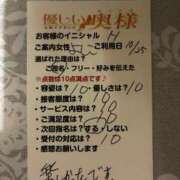 優しい奥様
お客様のイニシャル H
ご案内女性 ご利用日 10/25
選ばれた理由は？
ご指名・フリー・好みを伝えた
※点数は10点満点です！
・容姿は？10・優しさは？10
・接客態度は？ 10
・サービス内容は？ 10
・ご満足度は？
・次回指名は？ する・しない
・受付の対応は？ 10
・感想お願いします